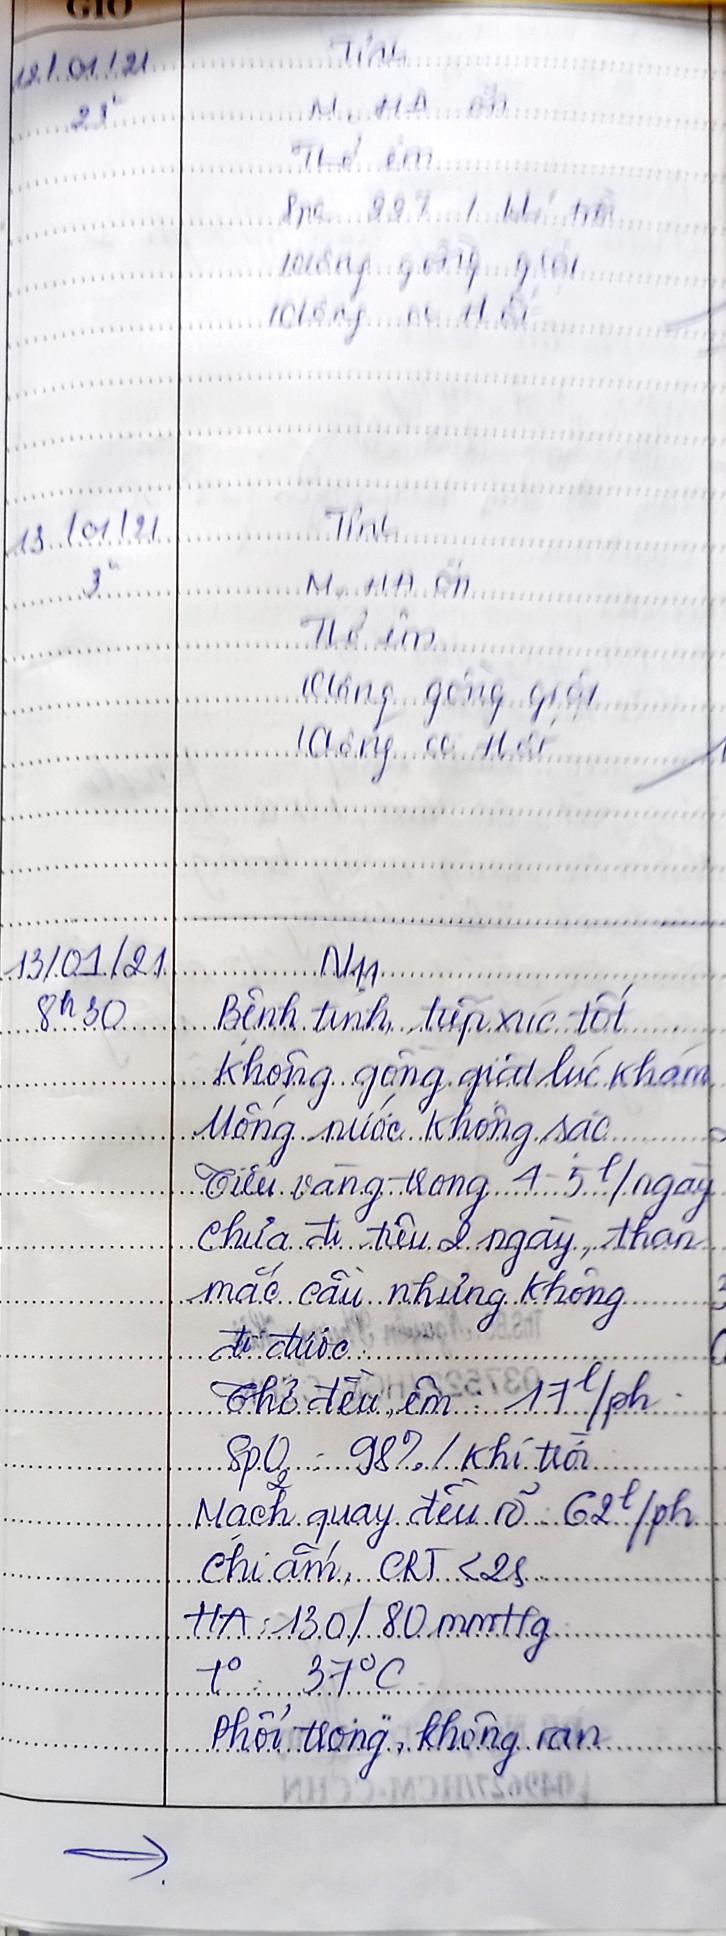 GIỜ
12/01/21 Tỉnh
23h M, HA ổn
Thở êm
SpO2 99% / khí trời
Không gồng giật
Không co thắt
13/01/21 Tỉnh
3h M, HA ổn
Thở êm
Không gồng giật
Không co thắt
13/01/21 N11
8h30 Bệnh tỉnh, tiếp xúc tốt
Không gồng giật lúc khám
Uống nước không sặc
Tiểu vàng trong 4-5 l/ngày
Chưa đi tiêu 2 ngày, than
mắc cầu nhưng không
đi được
Thở đều, êm: 17 l/ph
SpO2: 98% / khí trời
Mạch quay đều rõ: 62 l/ph
Chi ấm, CRT <2s
HA: 130/80 mmHg
t°: 37°C
Phổi trong, không ran
→